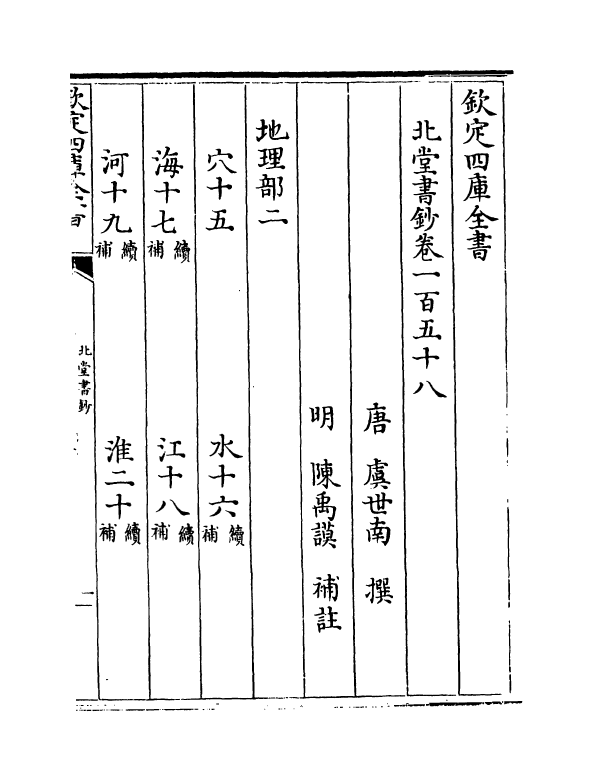 欽定四庫全書
北堂書鈔卷一百五十八
唐 虞世南 撰
明 陳禹謨 補註
地理部二
穴十五 水十六續補
海十七續補 江十八續補
河十九續補 淮二十續補
欽定四庫全書 北堂書鈔